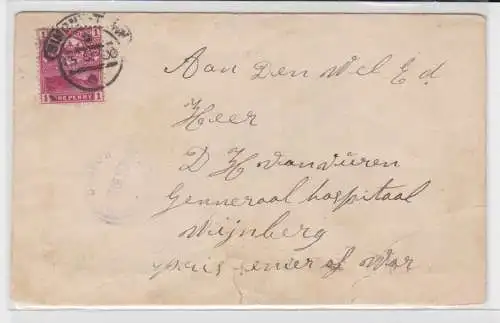 1 1
1 ONE PENNY 1
Aan Den Wel Ed
Heer
D H van vuren
Genneraal hospitaal
Wijnberg
of War